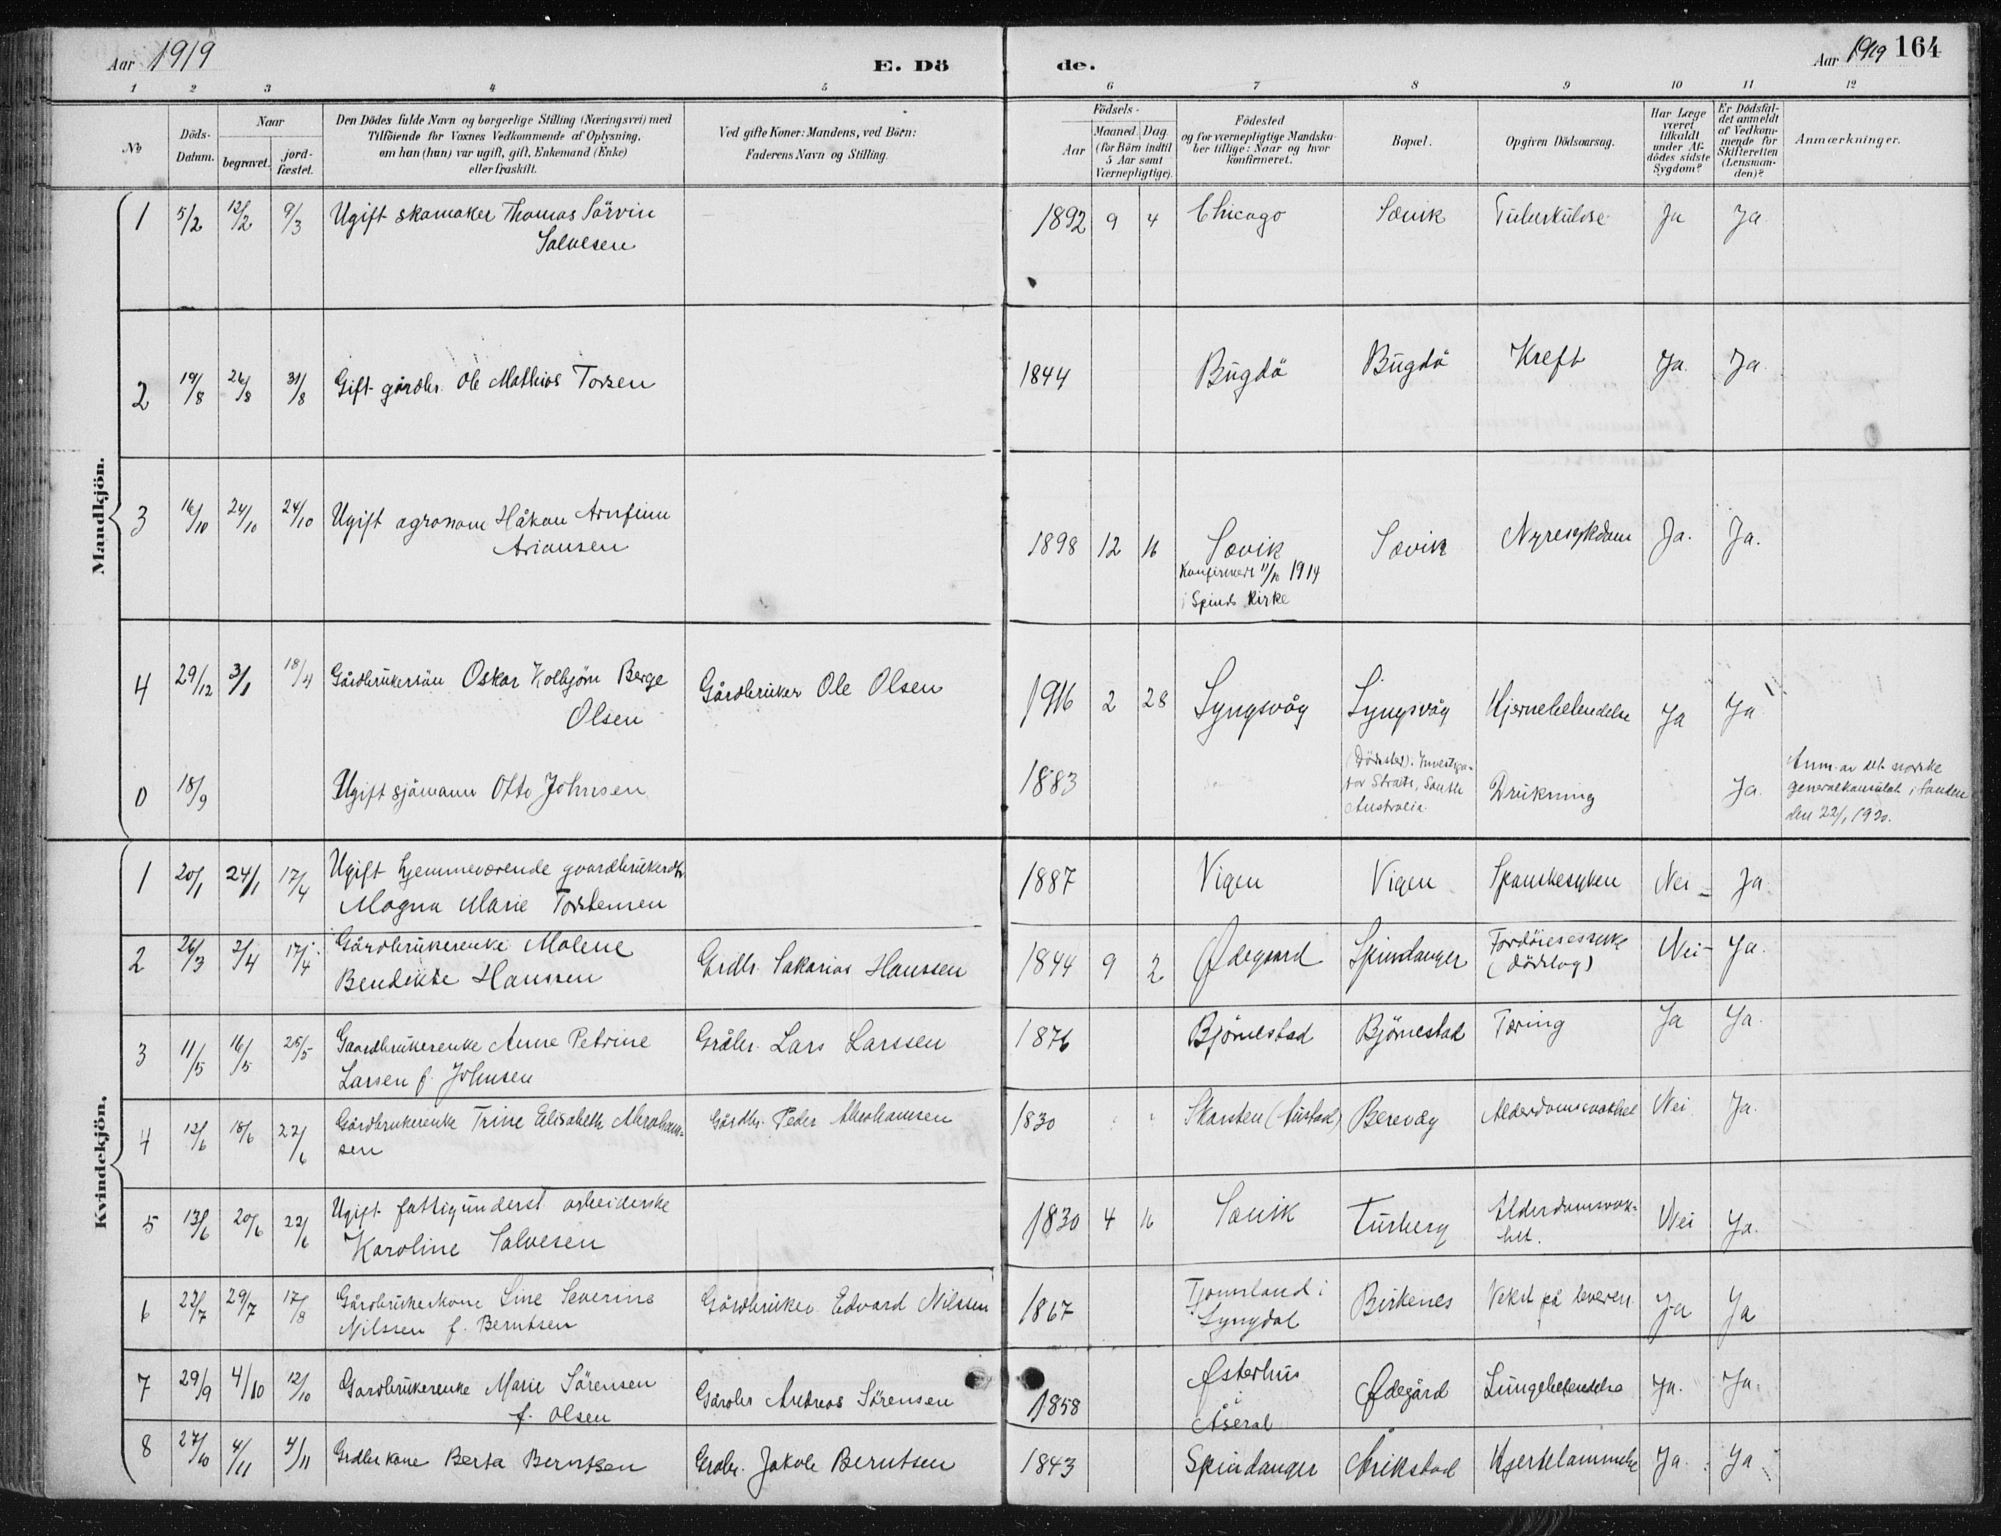 Aar 1919
E. Dö
de.
Aar 1919
164
1 2 3 4 5 6 7 8 9 10 11 12
No
Döds-
Datum.
Naar
begravet.
jord-
fæstet.
Den Dödes fulde Navn og borgerlige Stilling (Næringsvei) med
Tilföiende for Voxnes Vedkommende af Oplysning,
om han (hun) var ugift, gift, Enkemand (Enke)
eller fraskilt.
Ved gifte Koner: Mandens, ved Börn:
Faderens Navn og Stilling.
Födsels-
Aar
Maaned. Dag.
(for Börn indtil
5 Aar samt
Værnepligtige).
Födested
og for værnepligtige Mandska-
ber tillige: Naar og hvor
konfirmeret.
Bopæl.
Opgiven Dödsaarsag.
Har Læge
været
tilkaldt
under Af-
dödes sidste
Sygdom?
Er Dödsfal-
det anmeldt
af Vedkom-
mende for
Skifteretten
(Lensman-
den)?
Anmærkninger.
Mandkjön.
1 5/2 12/2 9/3 Ugift skomaker Thomas Sörvin
Salvesen
1892 9 4 Chicago Sævik Tuberkulose Ja Ja
2 19/8 26/8 31/8 Gift gårdbr. Ole Mathias Torsen
1844 Bugdö Bugdö Kreft Ja. Ja
3 16/10 24/10 24/10 Ugift agronom Håkon Arnfinn
Ariansen
1898 12 16 Sævik Sævik Nyresykdom Ja. Ja.
Konfirmert 11/10 1914
i Spinds kirke
4 29/12 3/1 18/4 Gårdbrukersön Oskar Kolbjörn Berge
Olsen
Gårdbruker Ole Olsen
1916 2 28 Lyngsvåg Lyngsvåg Hjernebetendelse Ja Ja
0 18/9 Ugift sjömann Otto Johnsen
1883 (Dödssted): Investiga-
tor Straits, South
Australia.
Drukning Ja.
Anm. av det norske
generalkonsulat i London
den 22/1 1920.
Kvindekjön.
1 20/1 24/1 17/4 Ugift hjemmeværende gaardbrukerdtr.
Magna Marie Torstensen
1887 Vigen Vigen Spanskesyken Nei Ja.
2 26/3 2/4 17/4 Gårdbrukerenke Malene
Bendikte Hanssen
Grdbr. Sakarias Hanssen
1844 9 2 Ødegaard Spindanger
(dödslag) Nei Ja.
3 11/5 16/5 25/5 Gaardbrukerenke Anne Petrine
Larsen f. Johnsen
Grdbr. Lars Larssen
1876 Björnestad Björnestad Tæring Ja Ja.
4 12/6 18/6 22/6 Gårdbrukerenke Trine Elisabeth Abraham-
sen
Gårdbr. Peder Abrahamsen
1830 Skarsten (Austad) Berevåg Alderdomssvakhet Nei Ja.
5 13/6 20/6 22/6 Ugift fattigunderst. arbeiderske
Karoline Salvesen
1830 4 16 Sævik Tusberg Alderdomssvak-
het. Nei Ja.
6 22/7 29/7 17/8 Gårdbrukerkone Line Severine
Nilssen f. Berntsen
Gårdbruker Edvard Nilssen
1867 Tjomsland i
Lyngdal Birkenes Vekst på leveren Ja Ja
7 29/9 4/10 12/10 Gardbrukerenke Marie Sörensen
f. Olsen
Gårdbr. Andreas Sörensen
1858 Østerhus
Åseral Ødegård Lungebetendelse Ja. Ja.
8 27/10 4/11 4/11 Grdbr kone Berta Berntsen
Grdbr. Jakob Berntsen
1843 Spindanger Årikstad Hjertelammelse Ja. Ja